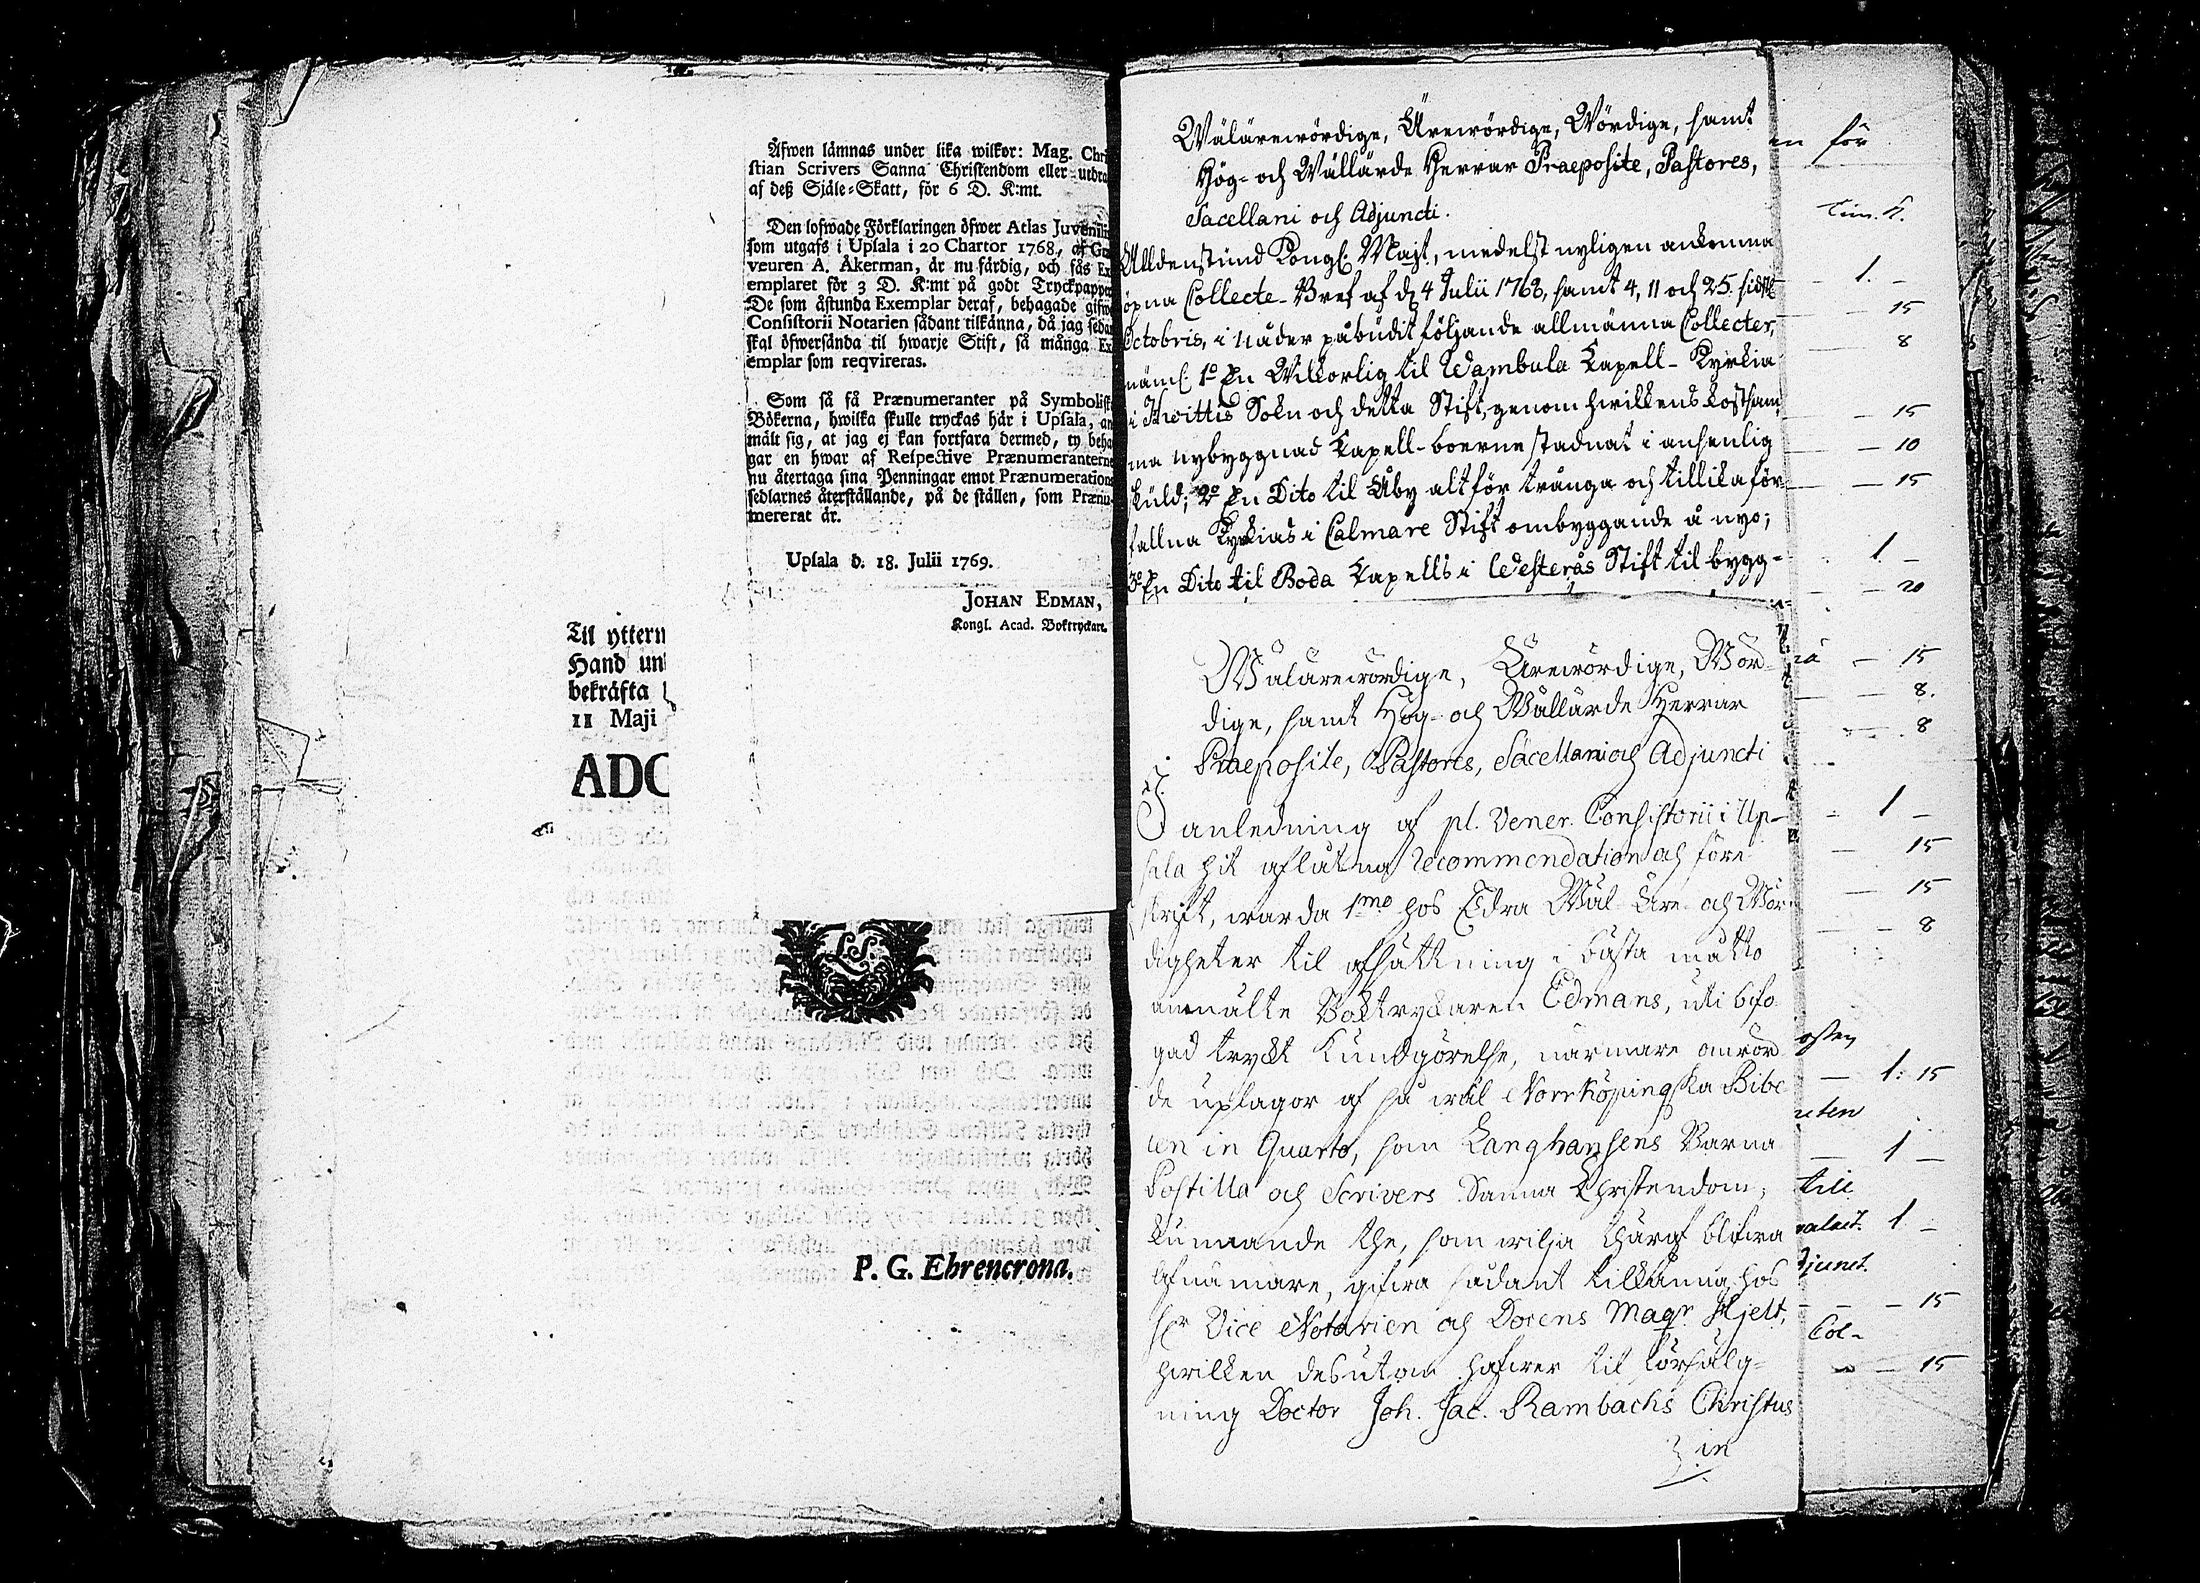 Åfwen lämnas under lika wilkor: Mag. Chri
stian Scrivers Sanna Christendom eller utdra
af deß Själe-Skatt, för 6 D. K:mt.
Den lofwade Förklaringen öfwer Atlas Juvenilis
som utgafs i Upsala i 20 Chartor 1768, af Gra
veuren A. Åkerman, är nu färdig, och fås Ex
emplaret för 3 D. K:mt på godt Tryckpapper
De som åstunda Exemplar deraf, behagade gifwa
Consistorii Notarien sådant tilkänna, då jag sedan
skal öfwersända til hwarje Stift, så många Ex
emplar som reqvireras.
Som så få Prænumeranter på Symbolisk
Bökerna, hwilka skulle tryckas här i Upsala, an
mält sig, at jag ej kan fortfara dermed, ty beha
gar en hwar af Respective Prænumeranterne
nu återtaga sina Penningar emot Prænumerations
sedlarnes återställande, på de ställen, som Prænu-
mererat är.
Upsala d. 18. Julii 1769.
JOHAN EDMAN,
Kongl. Acad. Boktryckare.
Til yttern
Hand un
bekräfta
11 Maji
ADO
L.S.
P. G. Ehrencrona.
Wälärewördige, Ärewördige, Wördige, samt
Hög- och Wällärde Herrar Praeposite, Pastores,
Sacellani och Adjuncti.
Alldenstund Kongl. Majt, medelst nyligen ankomna
öpna Collecte-Bref af d. 4 Julii 1768, samt 4, 11 och 25 sidstl.
Octobris, i Nåder påbudit följande allmänna Collecter,
näml. 1o En Wilkorlig til Wambula Capell-Kyrkia
i Hwittis Sokn och detta Stift, genom hwilkens kostsam
ma nybyggnad Capell-boerne stadnat i ansenlig
skuld; 2o En Dito til Åby altför trånga och tillika för
fallna Kyrkias i Calmare Stift ombyggande å nyo;
3o En Dito til Boda Capells i Westerås Stift til bygg-
Wälärewördige, Ärewördige, Wör-
dige, samt Hög- och Wällärde Herrar
Praeposite, Pastores, Sacellani och Adjuncti
I anledning af pl. Vener. Consistorii i Up-
sala hit aflåtna recommendation och före-
skrift, warda 1mo hos Edra Wäl- Äre- och Wör-
digheter til afsättning i bästa måtto
anmälte Boktryckaren Edmans, uti bifo-
gad tryckt Kundgörelse, närmare omrör-
de uplagor af så wäl Norrköpingska Bibe
len in Quarto, som Langhansens Barna
Postilla och Scrivers Sanna Christendom;
kunnande the, som wilja thäraf blifwa
afnämare, gifwa sådant tilkänna hos
Hr Vice Notarien och Docens Magr Hjelt,
hwilken desutom hafwer til försälg-
ning Doctor Joh. Jac. Rambachs Christus
in
en för
1. —
— 15
8
— 15
— 10
— 15
1 —
— 20
— 15
— 8.
— 8
— 1 —
— 15
— 15
— 8
— 1: 15
— 1 —
till
1 —
djunct.
— — 15
Col-
— 15